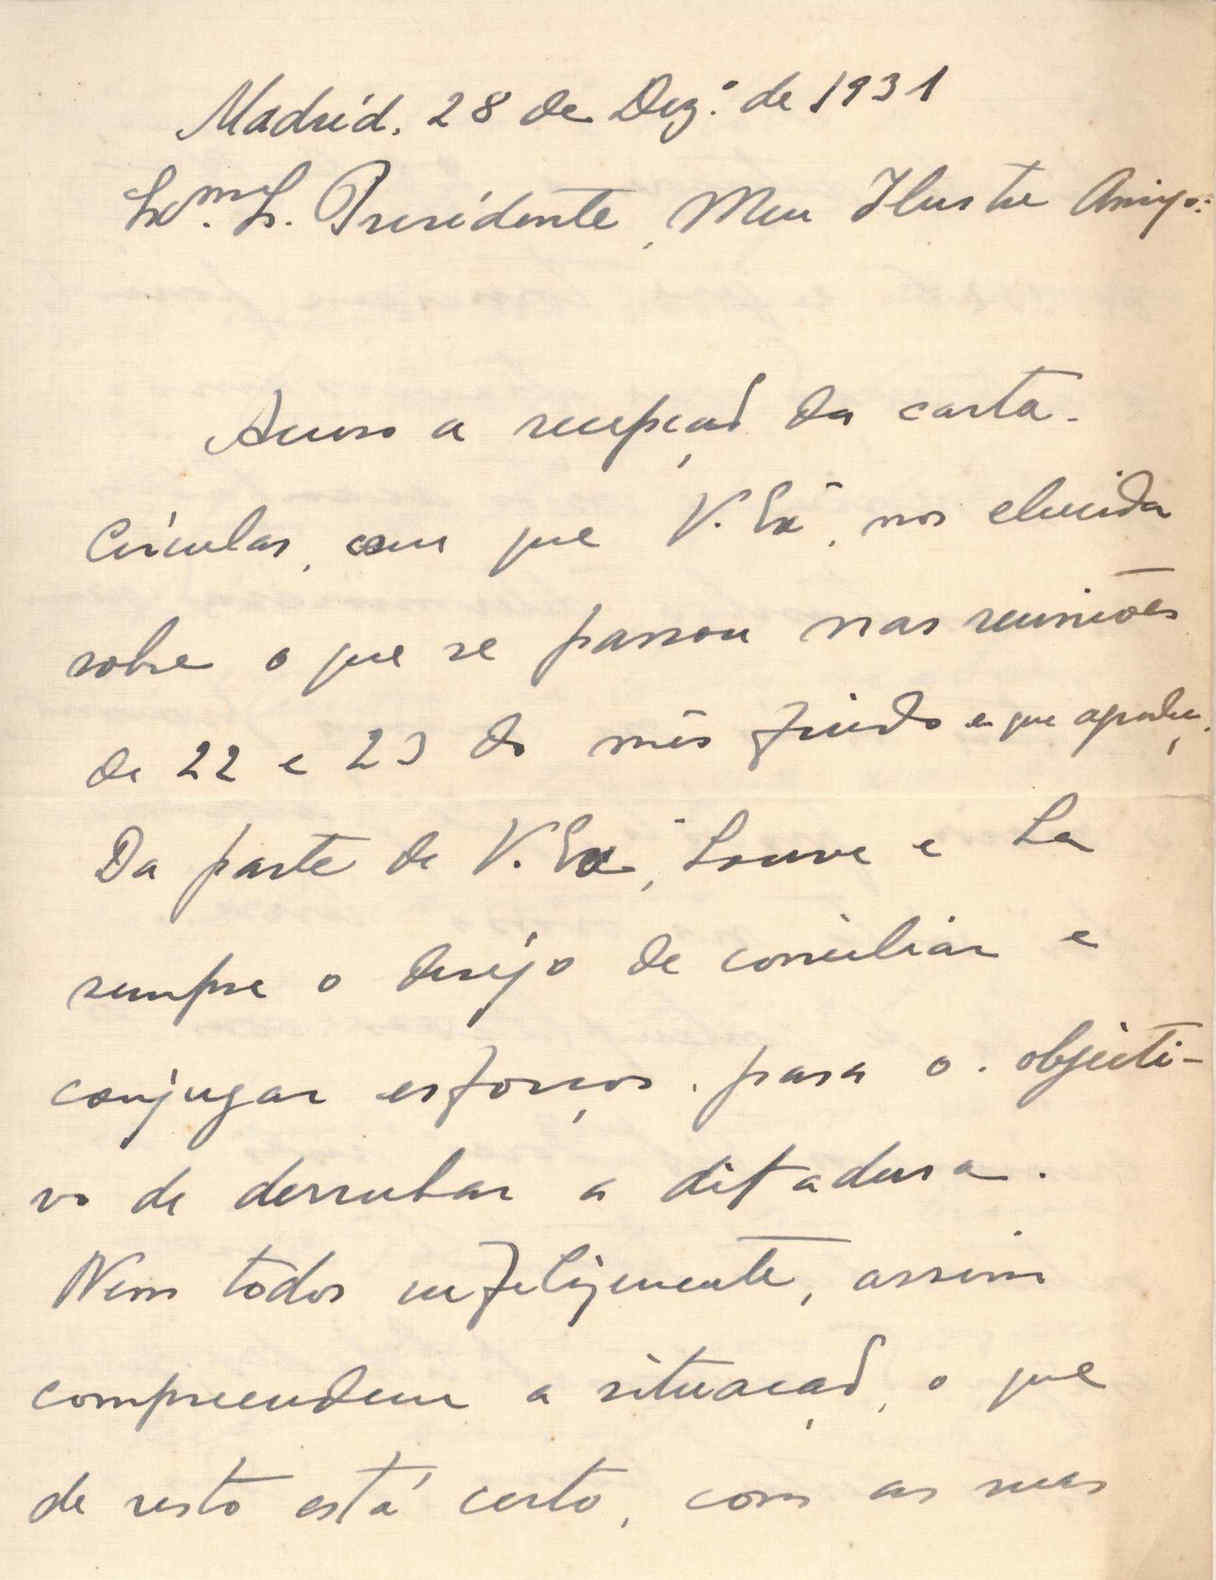 Madrid, 28 de Dez.º de 1931
Exm. Sr. Presidente, Meu Ilustre Amigo:
Acuso a recepção da carta-
Circular, com que V. Exª, nos elucida
sobre o que se passou nas reuniões
de 22 e 23 do mês findo e que agradeço.
Da parte de V. Exª, houve e ha
sempre o desejo de conciliar e
conjugar esforços para o objecti-
vo de derrubar a ditadura.
Nem todos infelizmente, assim
compreendem a situação, o que
de resto está certo, com as suas